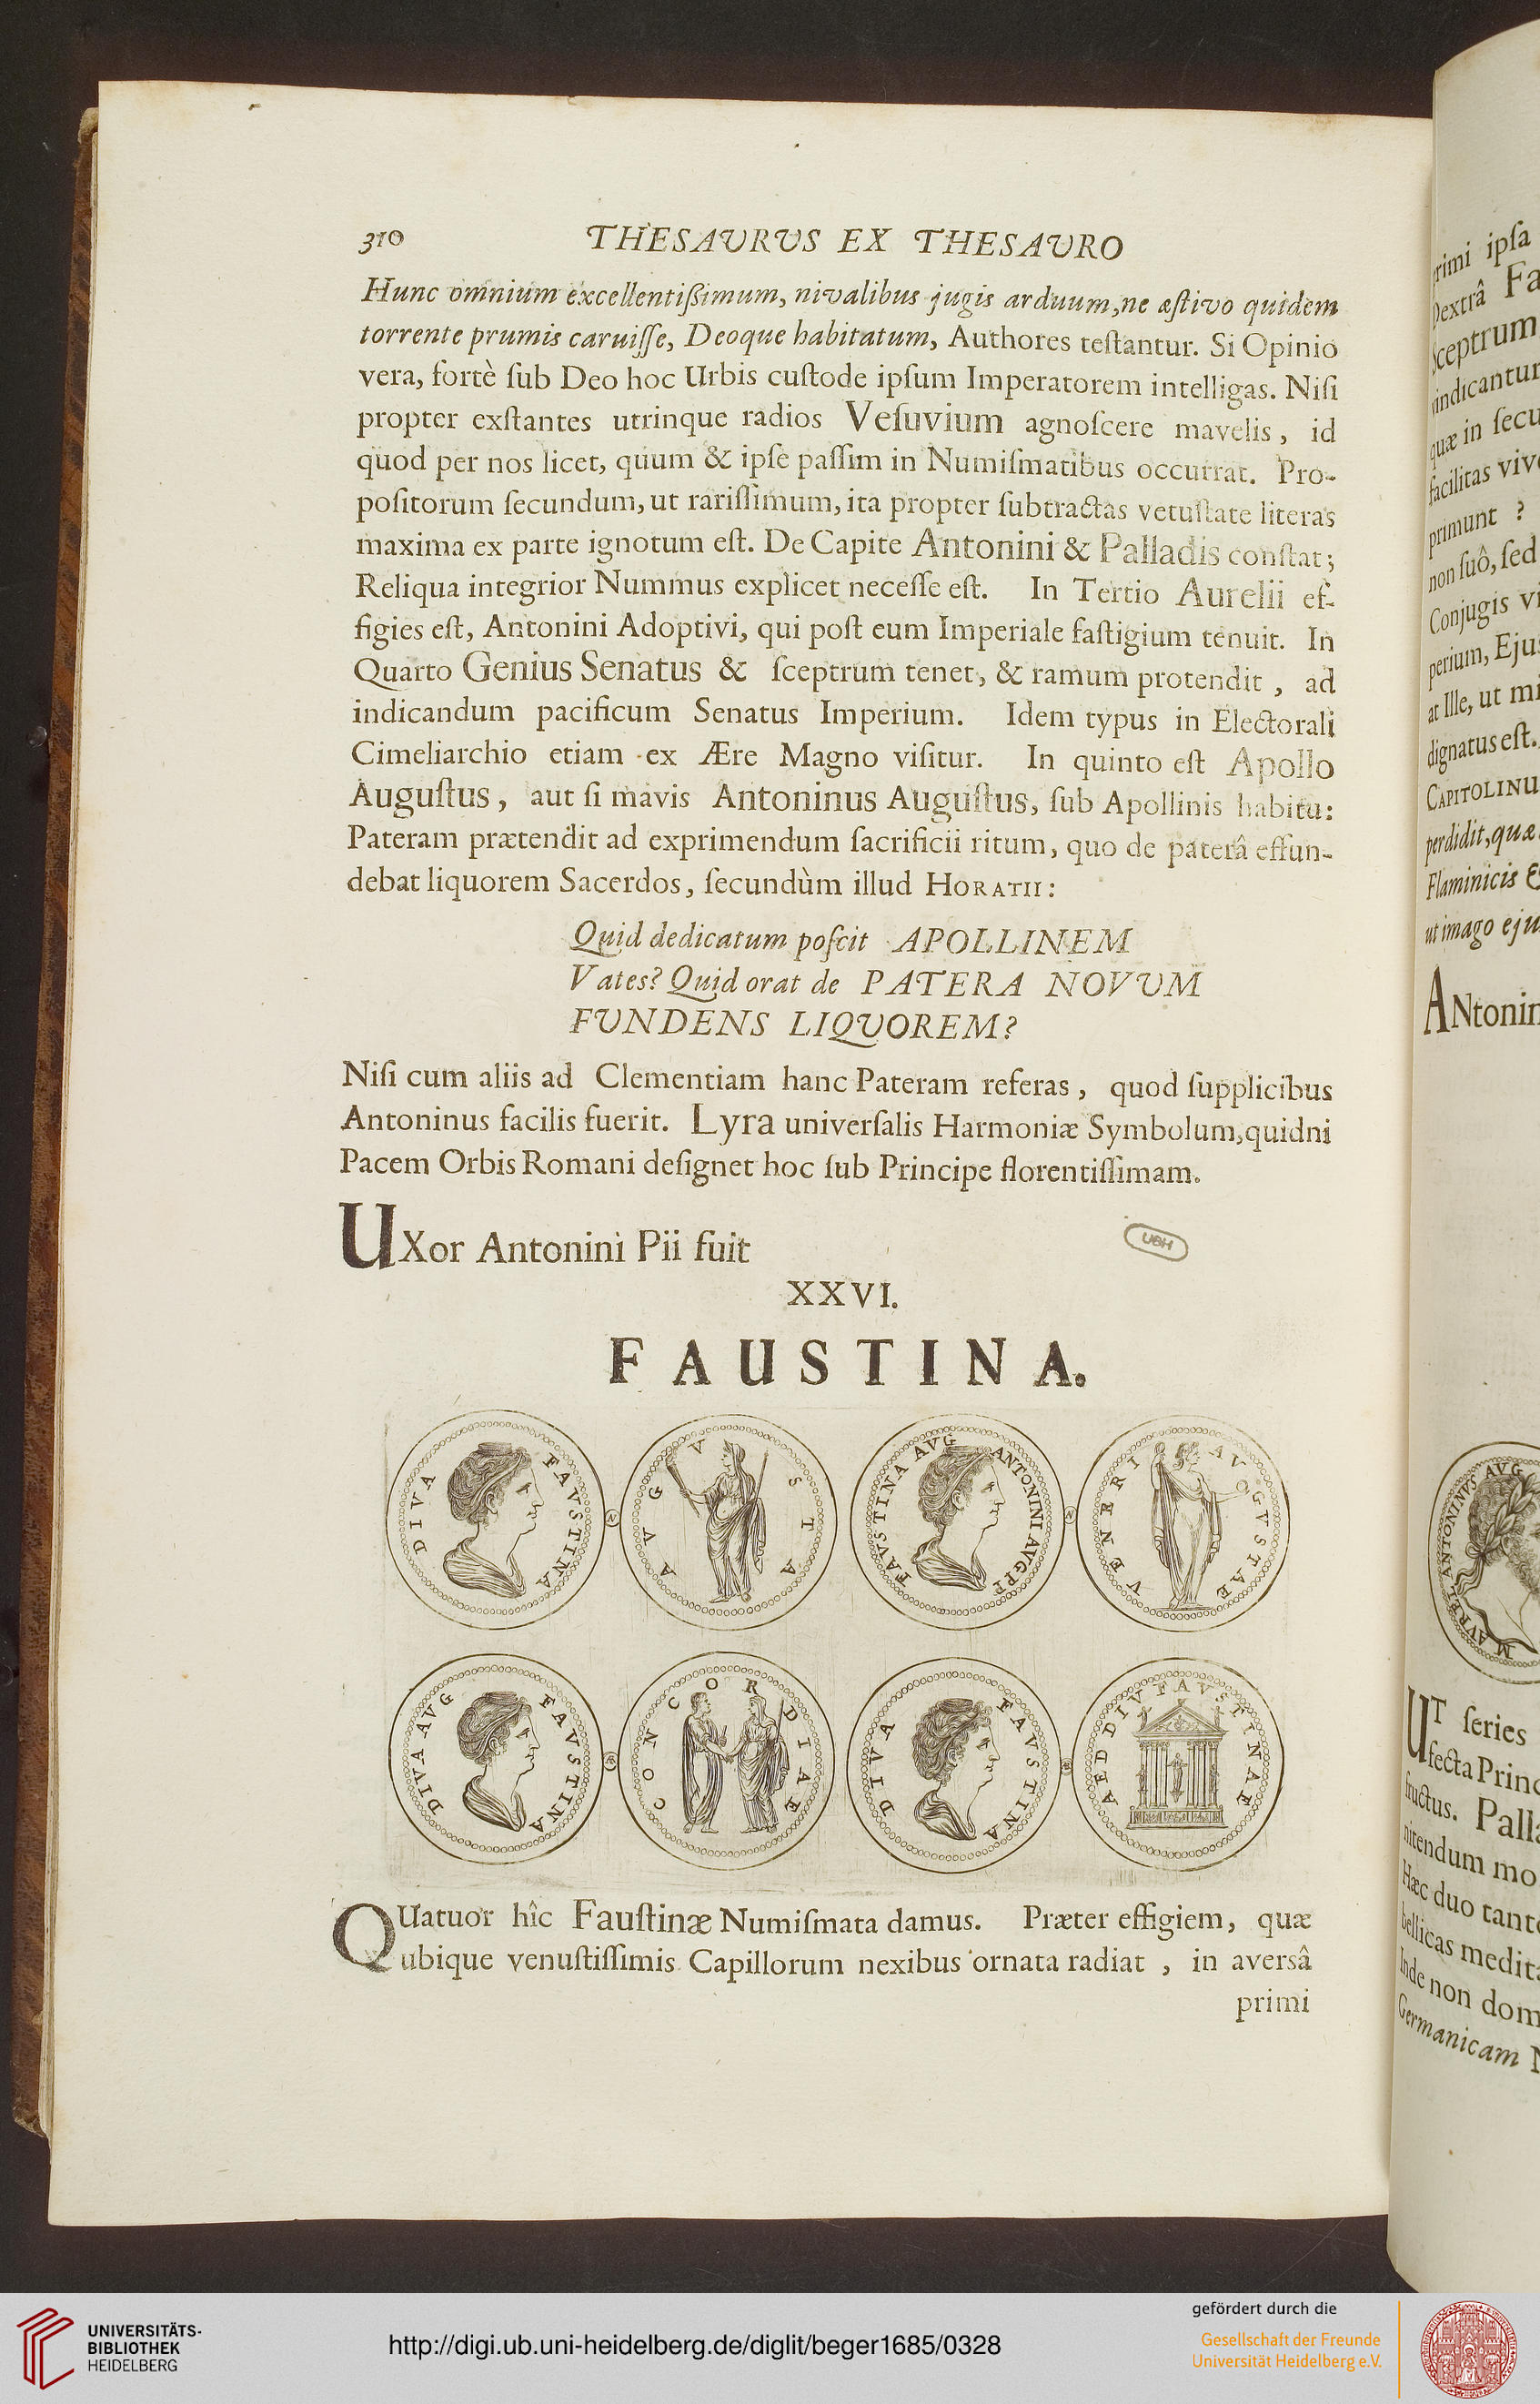 310 THESAVRVS EX THESAVRO
Hunc omnium excellentißimum, nivalibus jugis arduum, ne æſtivo quidem
torrente prumis caruiſſe, Deoque habitatum, Authores teſtantur. Si Opinio
vera, fortè ſub Deo hoc Urbis cuſtode ipſum Imperatorem intelligas. Niſi
propter exſtantes utrinque radios Veſuvium agnoſcere mavelis, id
quod per nos licet, quum & ipſe paſſim in Numiſmatibus occurrat. Pro-
poſitorum ſecundum, ut rariſſimum, ita propter ſubtractas vetuſtate literas
maxima ex parte ignotum eſt. De Capite Antonini & Palladis conſtat;
Reliqua integrior Nummus explicet neceſſe eſt. In Tertio Aurelii ef-
figies eſt, Antonini Adoptivi, qui poſt eum Imperiale faſtigium tenuit. In
Quarto Genius Senatus & ſceptrum tenet, & ramum protendit, ad
indicandum pacificum Senatus Imperium. Idem typus in Electorali
Cimeliarchio etiam ex Ære Magno viſitur. In quinto eſt Apollo
Auguſtus, aut ſi mavis Antoninus Auguſtus, ſub Apollinis habitu:
Pateram prætendit ad exprimendum ſacrificii ritum, quo de paterâ effun-
debat liquorem Sacerdos, ſecundùm illud HORATII:
Quid dedicatum poſcit APOLLINEM
Vates? Quid orat de PATERA NOVVM
FVNDENS LIQVOREM?
Niſi cum aliis ad Clementiam hanc Pateram referas, quod ſupplicibus
Antoninus facilis fuerit. Lyra univerſalis Harmoniæ Symbolum, quidni
Pacem Orbis Romani deſignet hoc ſub Principe florentiſſimam.
UXor Antonini Pii fuit
UBH
XXVI.
FAUSTINA.
DIVA FAVSTINA
AVGVSTA
FAVSTINA AVG ANTONINI AVG PP
VENERI AVGVSTAE
DIVA AVG FAVSTINA
CONCORDIAE
DIVA FAVSTINA
AED DIV FAVSTINAE
QUatuor hîc Fauſtinæ Numiſmata damus. Præter effigiem, quæ
ubique venuſtiſſimis Capillorum nexibus ornata radiat, in aversâ
primi
primi ipſa
Dextrâ Fa
ſceptrum
vindicantur
quæ in ſecu
facilitas vive
primunt ?
non ſuô, ſed
Conjugis vi
perium, Eju
at Ille, ut mi
dignatus eſt.
CAPITOLINU
perdidit, quæ
Flaminicis &
ut imago eju
ANtonin
M AVREL ANTONINVS AVG
UT ſeries
fecta Princ
fructus. Palla
nitendum mo
Hæc duo tant
bellicas medit
Inde non dom
Germanicam
UNIVERSITÄTS-
BIBLIOTHEK
HEIDELBERG
http://digi.ub.uni-heidelberg.de/diglit/beger1685/0328
gefördert durch die
Gesellschaft der Freunde
Universität Heidelberg e.V.